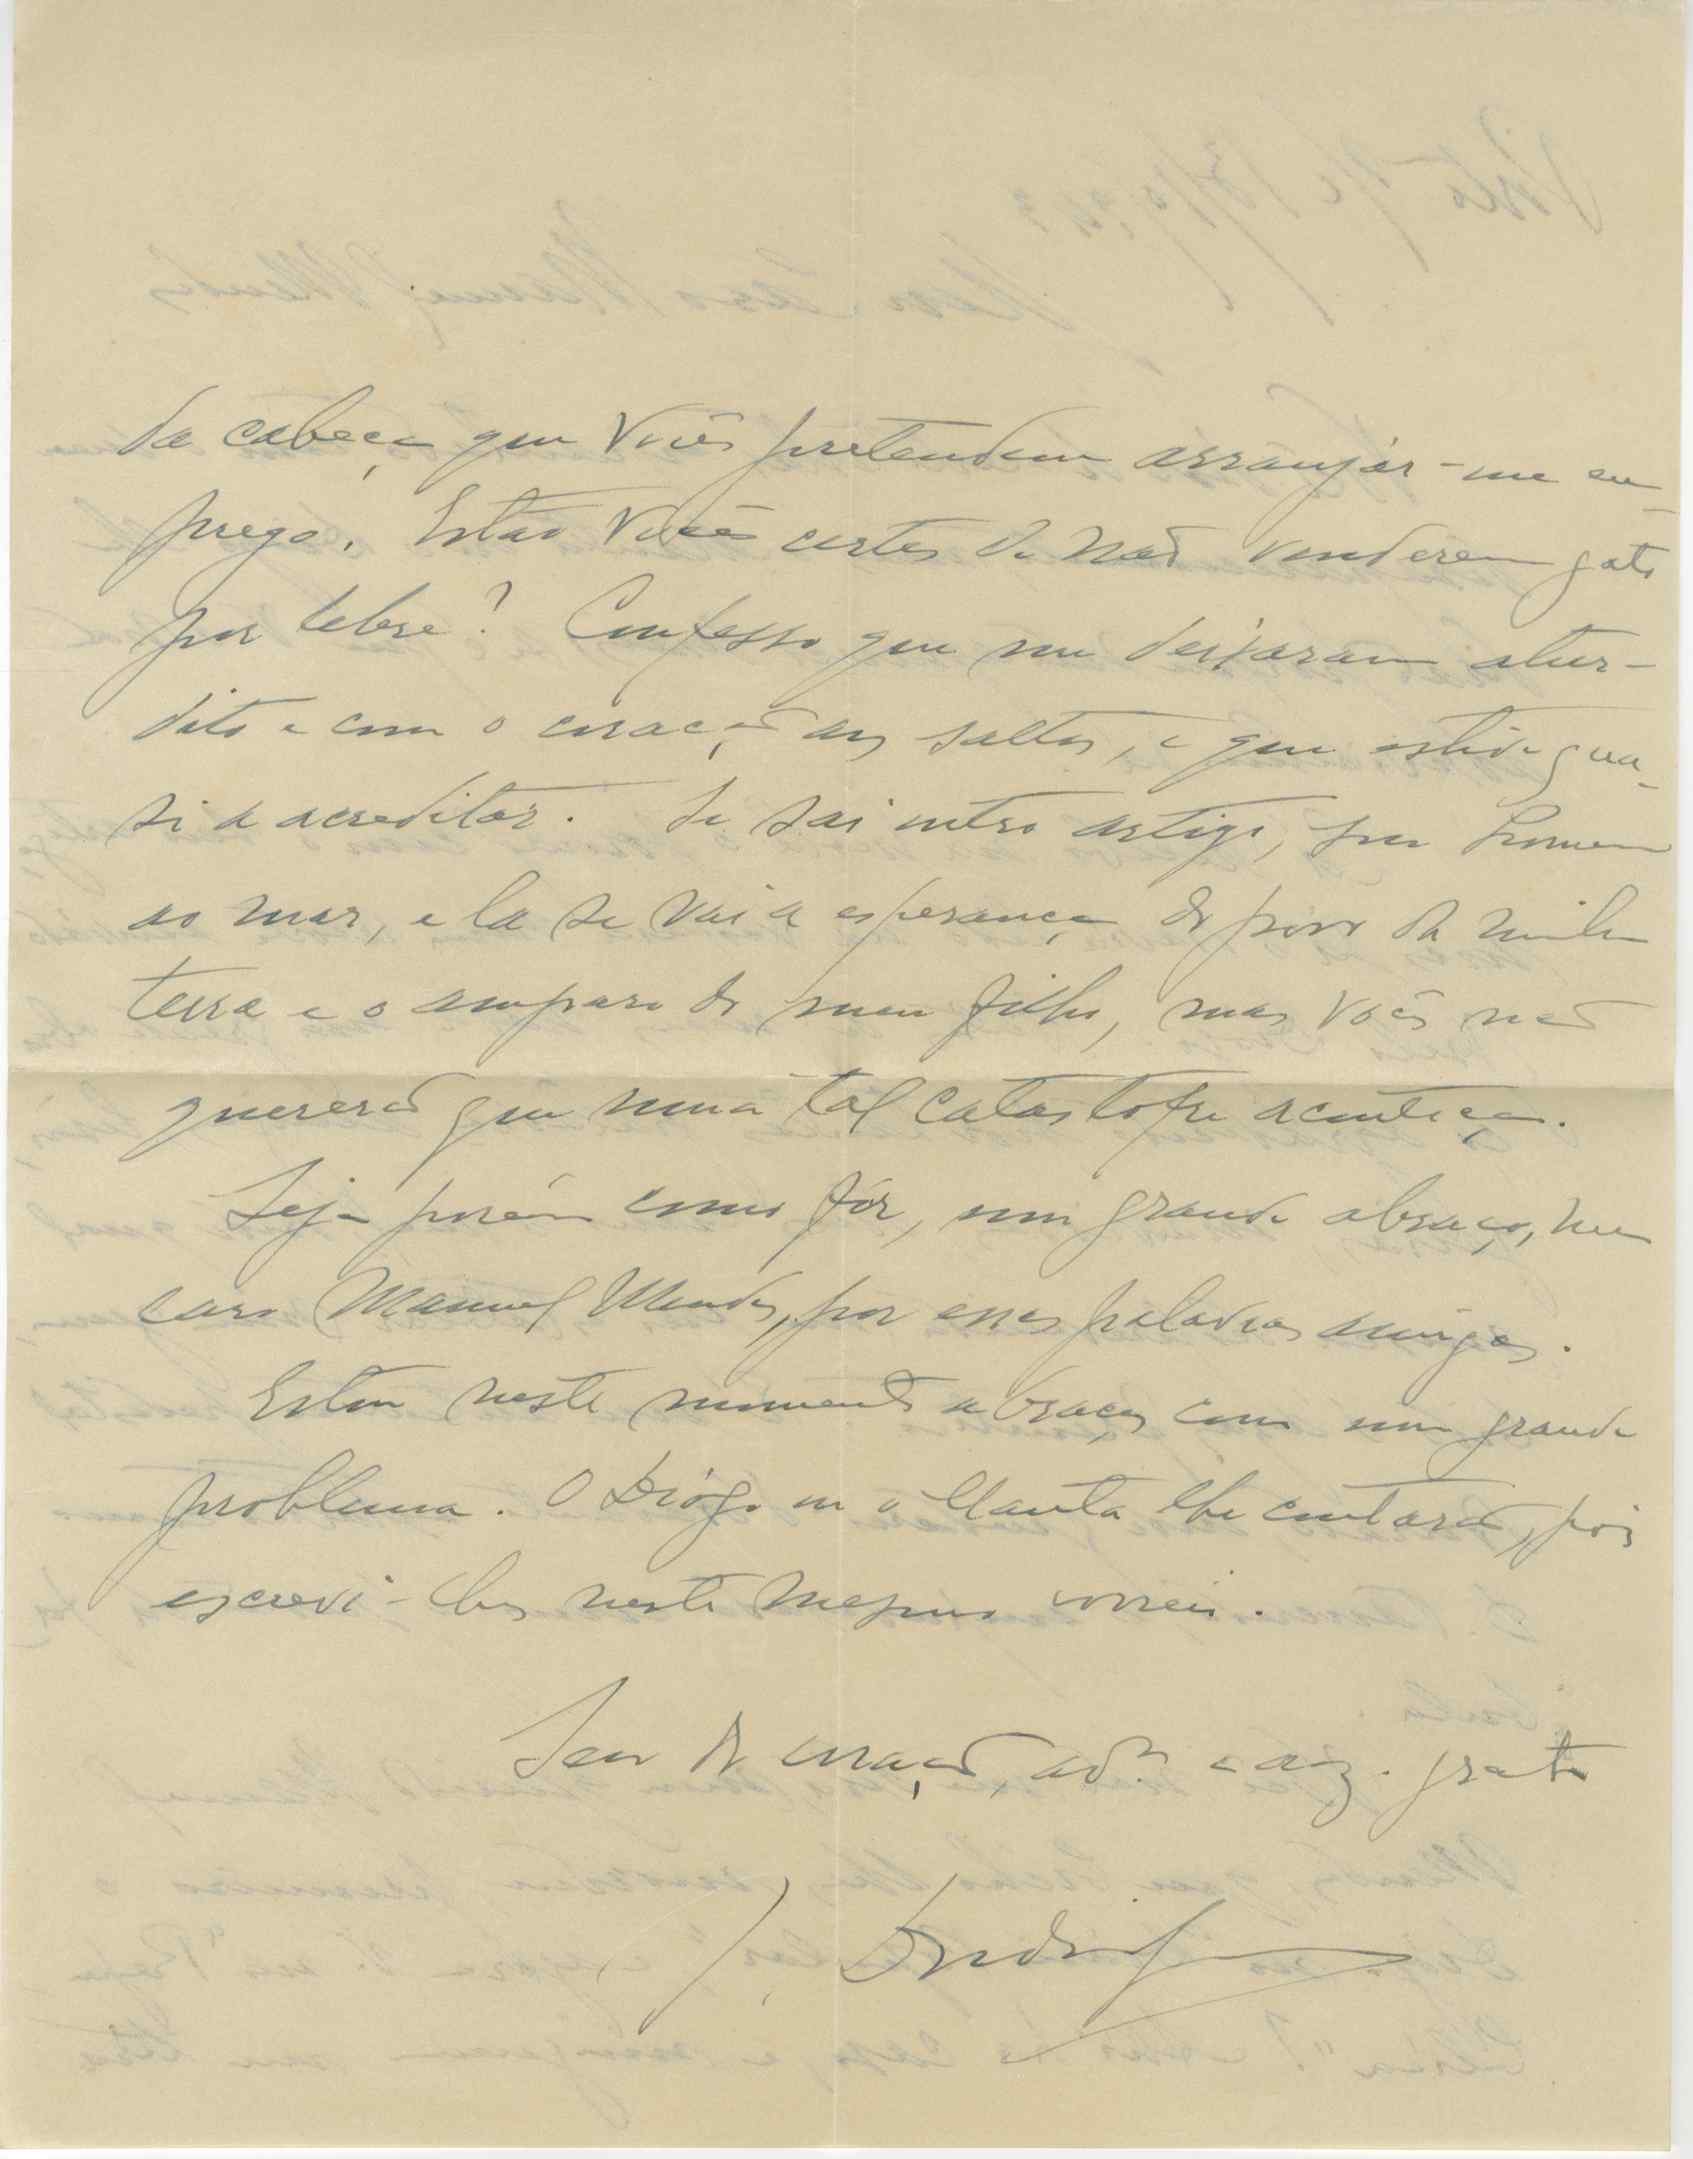 da cabeça que Vocês pretendem arranjar-me em-
prego. Estão Vocês certos de não venderem gato
por lebre? Confesso que me deixaram atur-
dito e com o coração aos saltos, e que estive qua-
si a acreditar. Se sai outro artigo, sou homem
ao mar, e la se vai a esperança do povo da minha
terra e o amparo do meu filho, mas Vocês não
quererão que uma tal catastofre aconteça.
Seja porém como fôr, um grande abraço, meu
caro Manuel Mendes, por essas palavras amigas.
Estou neste momento a braços com um grande
problema. O Diógo ou o Manta lhe contarão, pois
escrevi-lhes neste mesmo correio.
Seu do coração, ad.or e am.º grato
J.